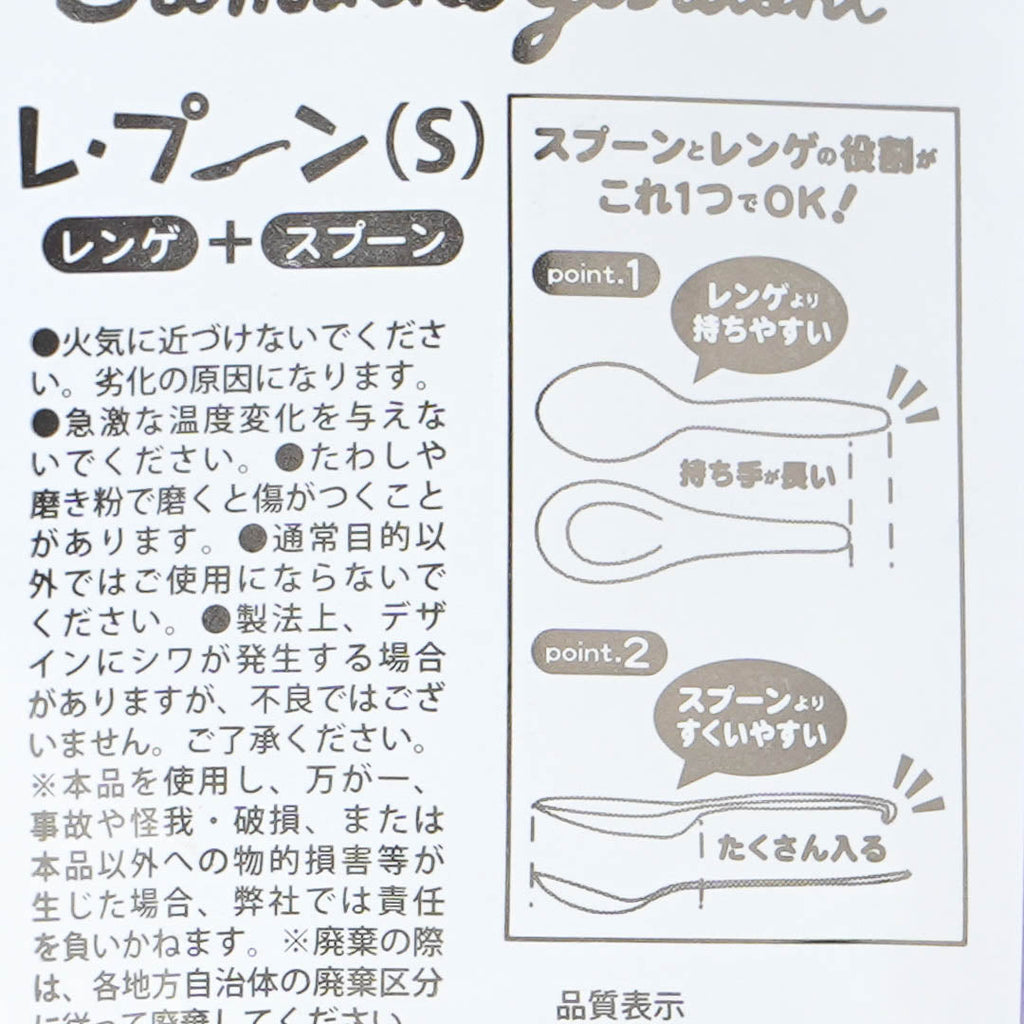 レ・プーン(S)
レンゲ+スプーン
●火気に近づけないでくださ
い。劣化の原因になります。
●急激な温度変化を与えな
いでください。●たわしや
磨き粉で磨くと傷がつくこと
があります。●通常目的以
外ではご使用にならないで
ください。●製法上、デザ
インにシワが発生する場合
がありますが、不良ではござ
いません。ご了承ください。
※本品を使用し、万が一、
事故や怪我・破損、または
本品以外への物的損害等が
生じた場合、弊社では責任
を負いかねます。※廃棄の際
は、各地方自治体の廃棄区分
に従って廃棄してください。
スプーンとレンゲの役割が
これ1つでOK!
point.1
レンゲより
持ちやすい
持ち手が長い
point.2
スプーンより
すくいやすい
たくさん入る
品質表示